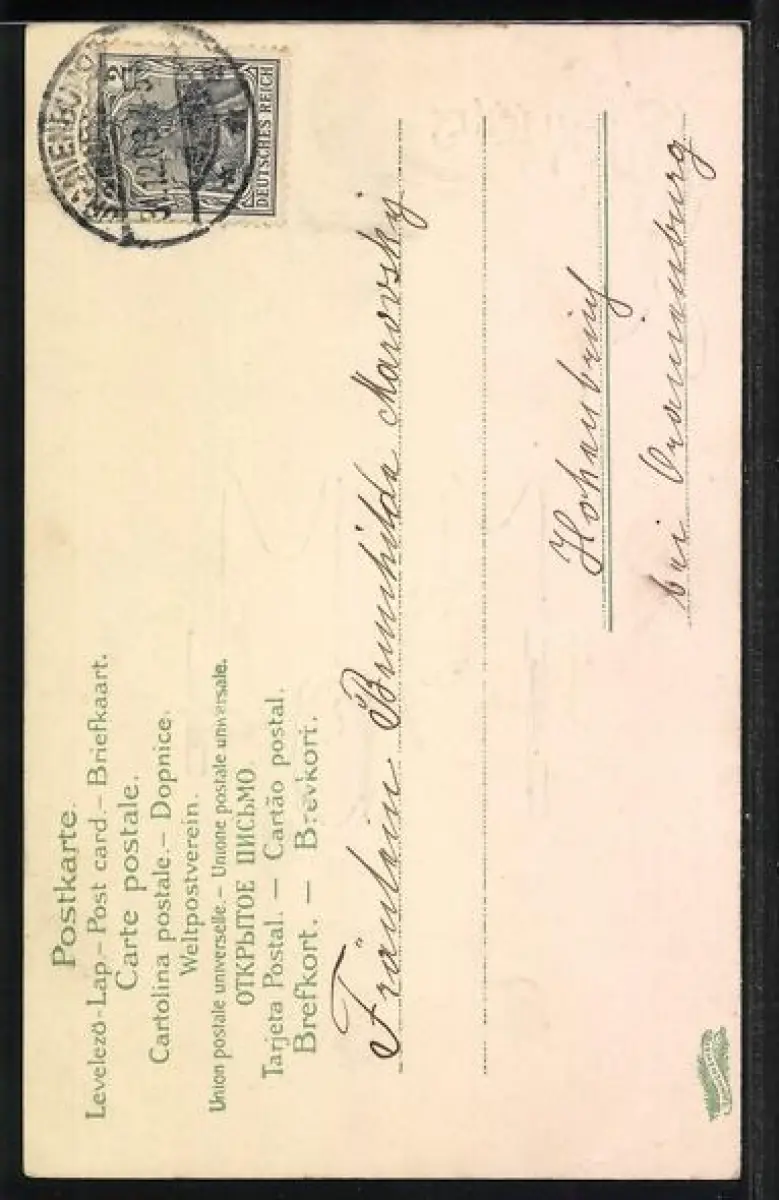 Postkarte.
Levelező-Lap.- Post card.- Briefkaart.
Carte postale.
Cartolina postale.- Dopnice.
Weltpostverein.
Union postale universelle.- Unione postale universale.
ОТКРЫТОЕ ПИСЬМО.
Tarjeta Postal. — Cartão postal.
Brefkort. — Brevkort.
2
DEUTSCHES REICH
31.12.03.
Fräulein Brunhilda Marovsky
Hohenbruch
bei Oranienburg